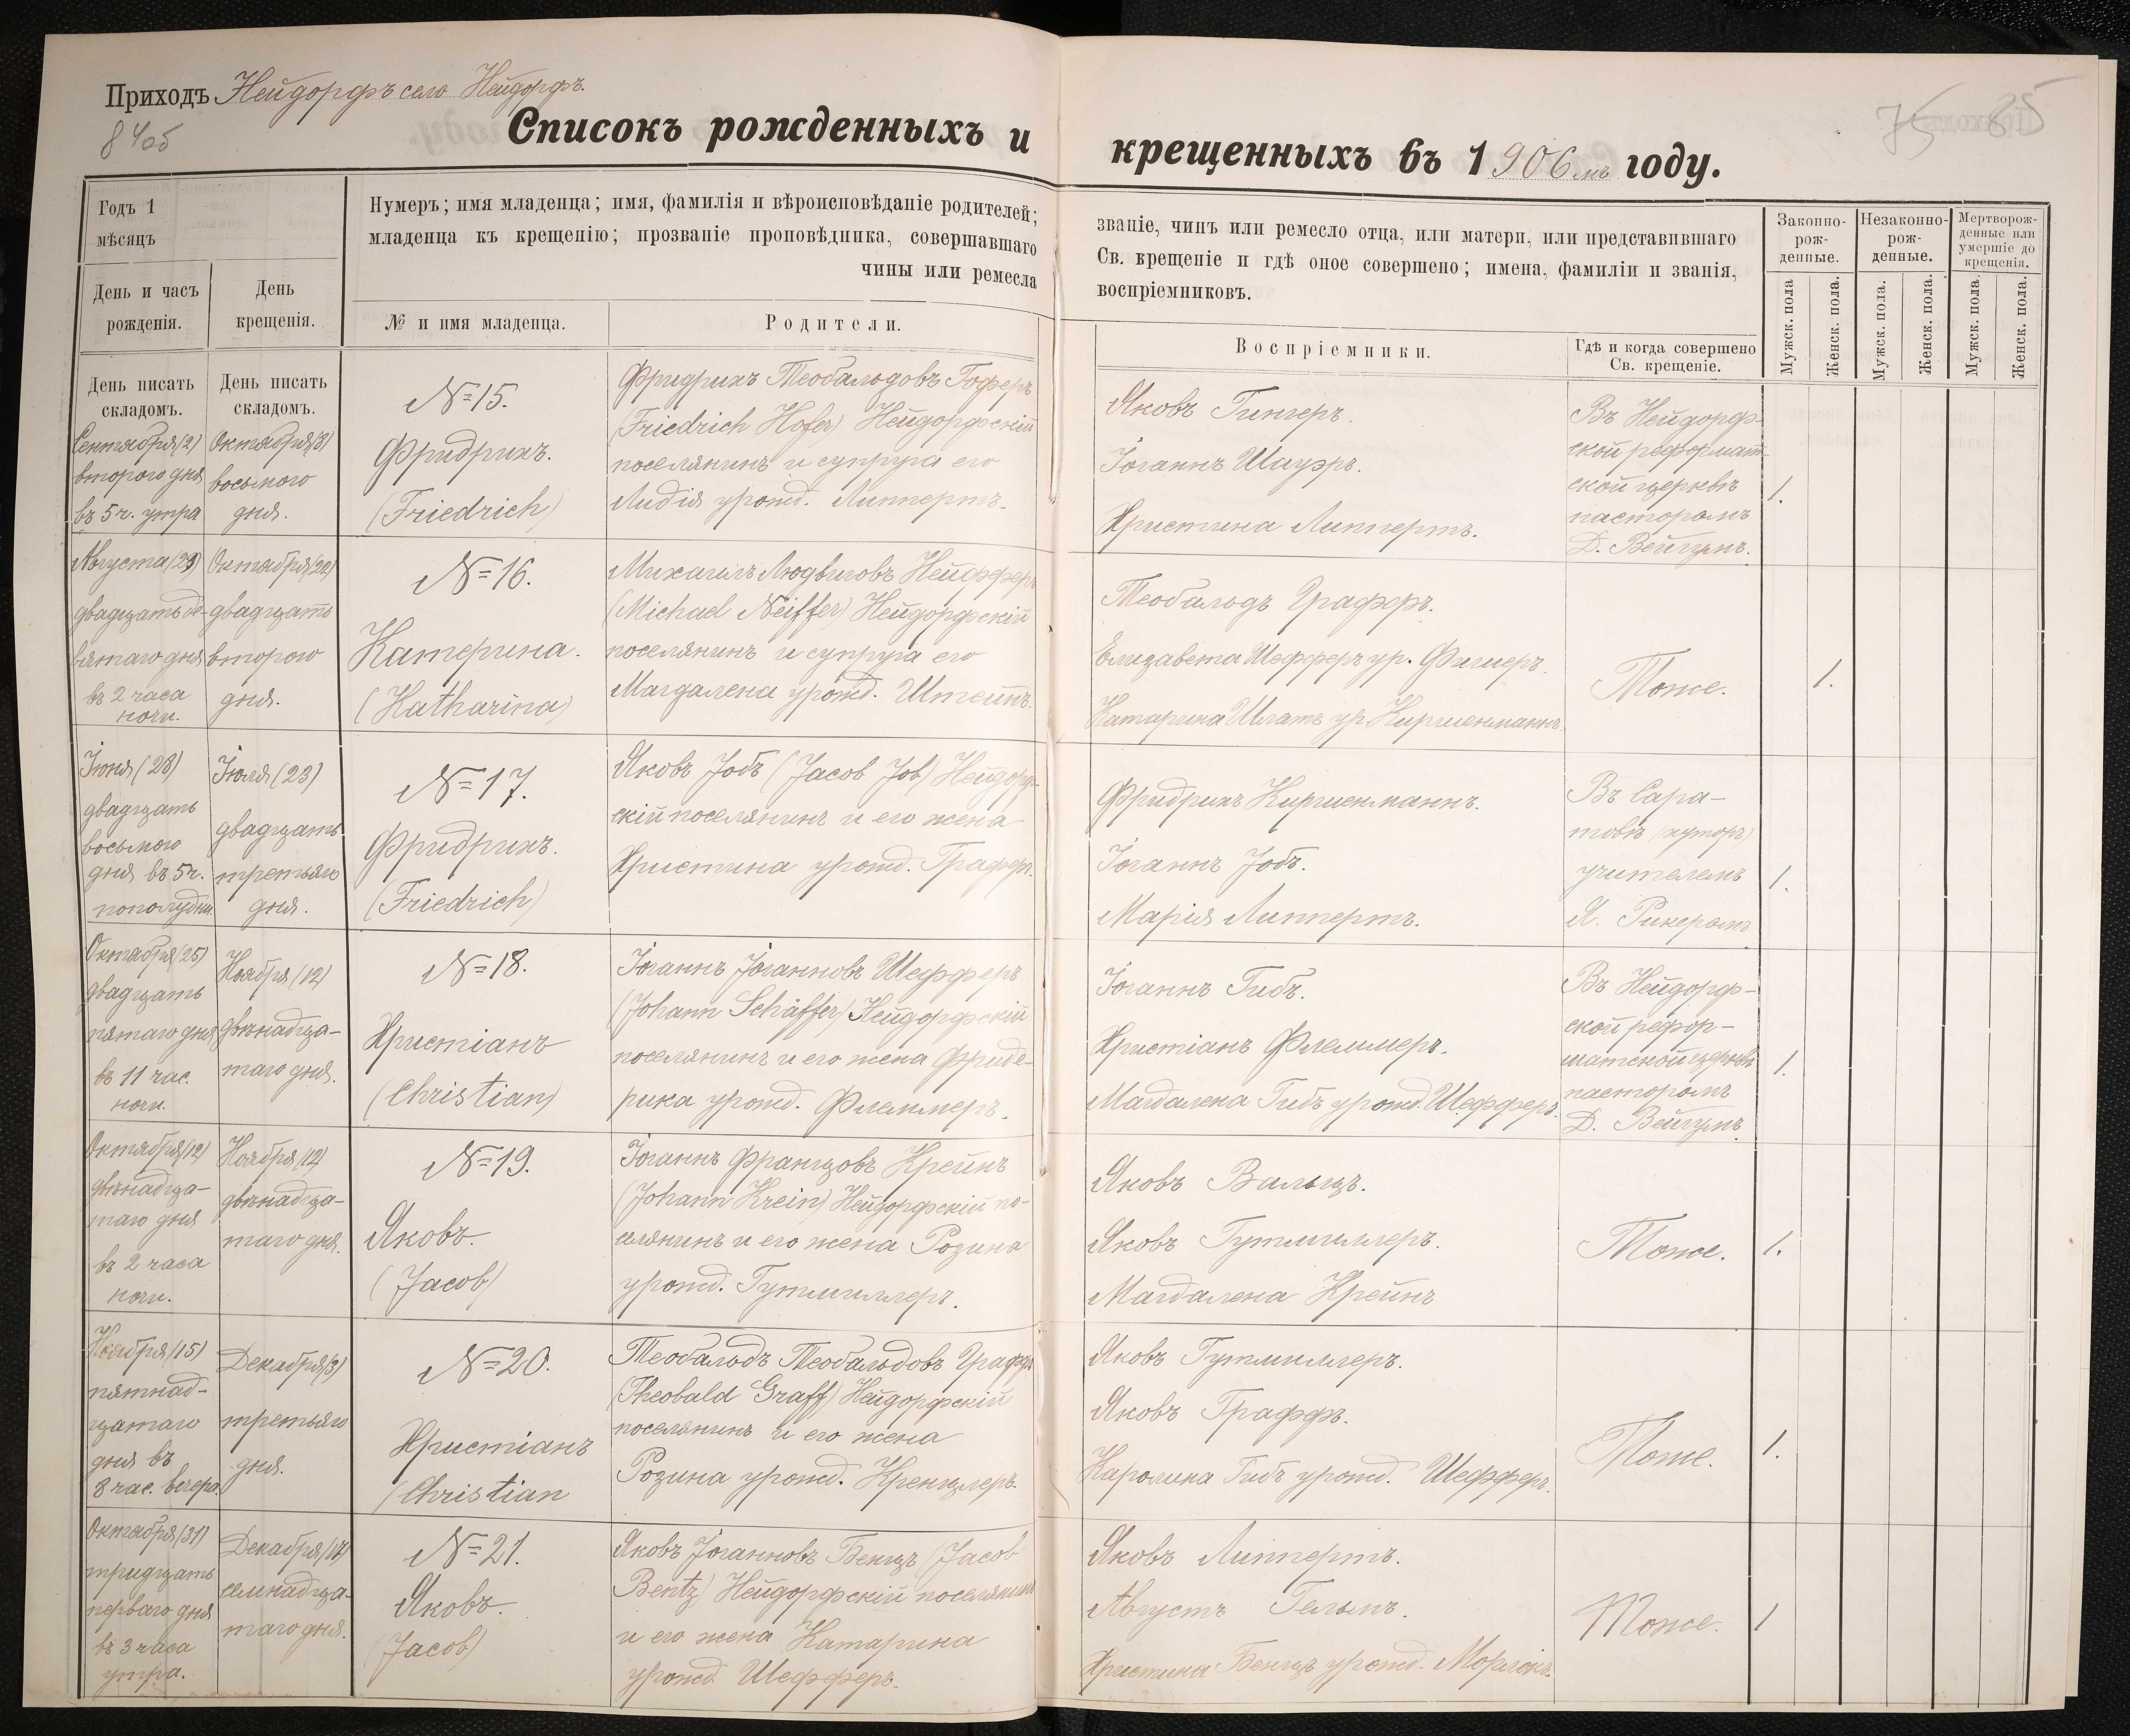 Приходъ Нейдорфъ село Нейдорфъ.
84об
75 85
Списокъ рожденныхъ и крещенныхъ въ 1906мъ году.
Годъ 1
мѣсяцъ
День и часъ
рожденія.
День
крещенія.
Нумеръ; имя младенца; имя, фамилія и вѣроисповѣданіе родителей;
младенца къ крещенію; прозваніе проповѣдника, совершавшаго
чины или ремесла
№ и имя младенца.
Родители.
званіе, чинъ или ремесло отца, или матери, или представившаго
Св. крещеніе и гдѣ оное совершено; имена, фамиліи и званія,
воспріемниковъ.
Воспріемники.
Гдѣ и когда совершено
Св. крещеніе.
Законно-
рож-
денные.
Незаконно-
рож-
денные.
Мертворож-
денные или
умершіе до
крещенія.
Мужск. пола
Женск. пола.
Мужск. пола.
Женск. пола.
Мужск. пола
Женск. пола.
День писать
складомъ.
День писать
складомъ.
Сентября (2)
второго дня
въ 5 ч. утра
Октября (8)
восьмого
дня.
№ 15.
Фридрихъ.
(Friedrich)
Фридрихъ Теобальдовъ Гоферъ
(Friedrich Hofer) Нейдорфскій
поселянинъ и супруга его
Лидія урожд. Липпертъ.
Яковъ Гингеръ.
Іоганнъ Шауэръ.
Христина Липпертъ.
Въ Нейдорф-
ской реформат-
ской церквѣ
пасторомъ
Д. Вейгумъ.
1.
Августа (29)
двадцать де-
вятаго дня
въ 2 часа
ночи.
Октября (22)
двадцать
второго
дня.
№ 16.
Катерина.
(Katharina)
Михаилъ Людвиговъ Нейфферъ
(Michael Neiffer) Нейдорфскій
поселянинъ и супруга его
Магдалена урожд. Штейнъ.
Теобальдъ Графъръ.
Елизавета Шефферъ ур. Фишеръ.
Катарина Шлатъ ур. Киршенманнъ.
Тоже.
1.
Іюня (28)
двадцать
восьмого
дня въ 5 ч.
пополудни.
Іюля (23)
двадцать
третьяго
дня.
№ 17.
Фридрихъ.
(Friedrich)
Яковъ Іобъ (Jacob Job) Нейдорф-
скій поселянинъ и его жена
Христина урожд. Графъ.
Фридрихъ Киршенманнъ.
Іоганнъ Іобъ.
Марія Липпертъ.
Въ Сара-
товѣ (хуторъ)
учителемъ
Я. Рикеромъ
1.
Октября (25)
двадцать
пятаго дня
въ 11 час.
ночи.
Ноября (12)
двѣнадца-
таго дня.
№ 18.
Христіанъ
(Christian)
Іоганнъ Іоганновъ Шефферъ
(Johann Schäffer) Нейдорфскій
поселянинъ и его жена Фриде-
рика урожд. Флеммеръ.
Іоганнъ Гибъ.
Христіанъ Флеммеръ.
Магдалена Гибъ урожд. Шефферъ.
Въ Нейдорф-
ской рефор-
матской церквѣ
пасторомъ
Д. Вейгумъ.
1.
Октября (12)
двѣнадца-
таго дня
въ 2 часа
ночи.
Ноября (12)
двѣнадца-
таго дня.
№ 19.
Яковъ.
(Jacob)
Іоганнъ Францовъ Крейнъ
(Johann Krein) Нейдорфскій по-
селянинъ и его жена Розина
урожд. Гутмиллеръ.
Яковъ Вальцъ.
Яковъ Гутмиллеръ.
Магдалена Крейнъ
Тоже.
1.
Ноября (15)
пятнад-
цатаго
дня въ
8 час. вечера
Декабря (3)
третьяго
дня.
№ 20.
Христіанъ
(Christian
Теобальдъ Теобальдовъ Граффъ
(Theobald Graff) Нейдорфскій
поселянинъ и его жена
Розина урожд. Кренцлеръ.
Яковъ Гутмиллеръ.
Яковъ Граффъ.
Каролина Гибъ урожд. Шефферъ.
Тоже.
1.
Октября (31)
тридцать
перваго дня
въ 3 часа
утра.
Декабря (17)
семнадца-
таго дня.
№ 21.
Яковъ.
(Jacob)
Яковъ Іоганновъ Бенцъ (Jacob
Bentz) Нейдорфскій поселянинъ
и его жена Катарина
урожд. Шефферъ.
Яковъ Липпертъ.
Августъ Гельмъ.
Христина Бенцъ урожд.
Тоже.
1